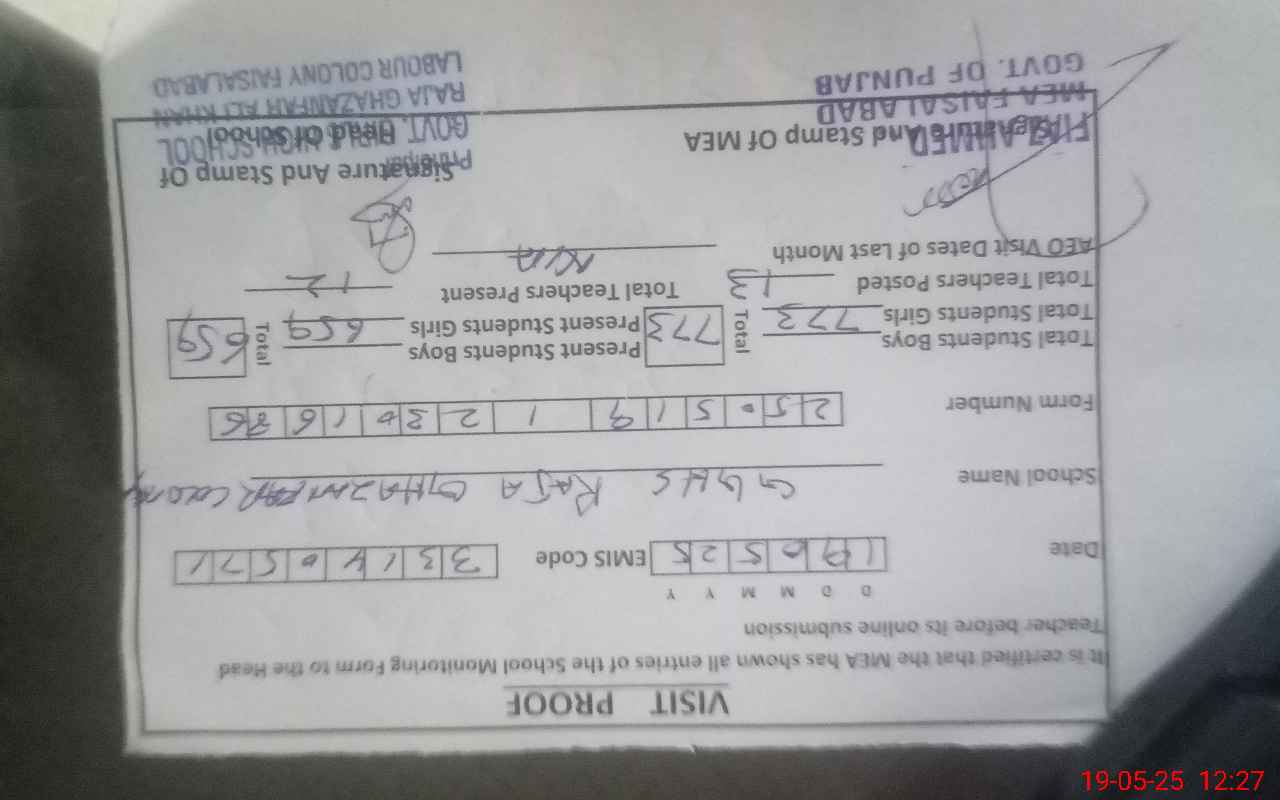 VISIT PROOF
It is certified that the MEA has shown all entries of the School Monitoring Form to the Head
Teacher before its online submission
D D M M Y Y
Date 190525 EMIS Code 33140571
School Name GGHS RAJA GHAZANFAR COLONY
Form Number 2505191230166
Total Students Boys Total 773 Present Students Boys Total 659
Total Students Girls 773 Present Students Girls 659
Total Teachers Posted 13 Total Teachers Present 12
AEO Visit Dates of Last Month
Signature And Stamp Of MEA
Signature And Stamp Of
Head Of School
AHMED
MEA FAISALABAD
GOVT. OF PUNJAB
Principal
GOVT. GIRLS HIGH SCHOOL
RAJA GHAZANFAR ALI KHAN
LABOUR COLONY FAISALABAD
19-05-25 12:27